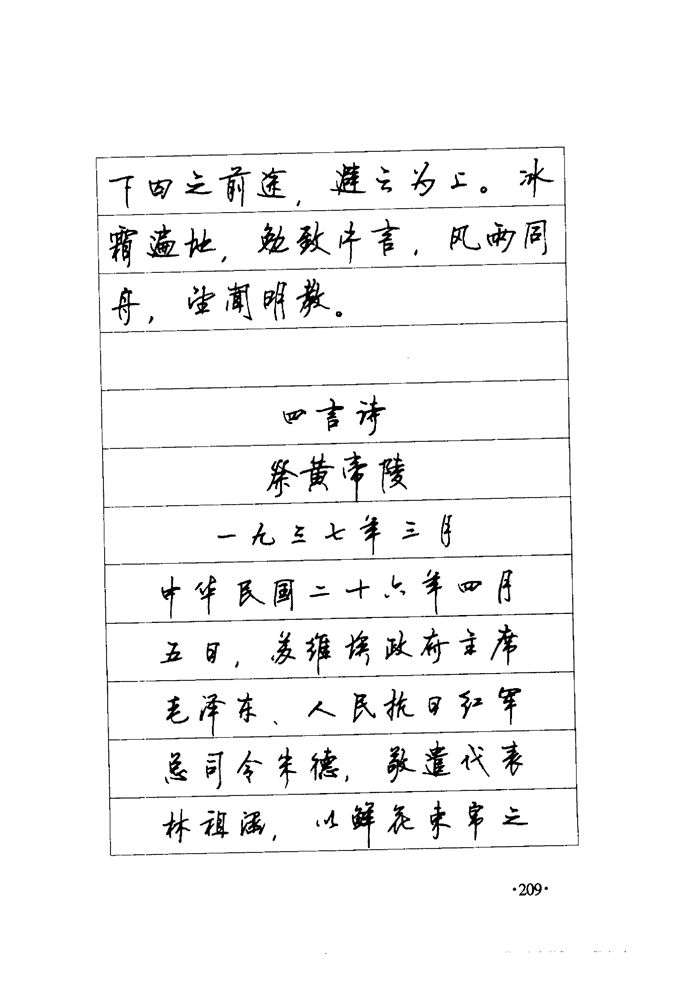 下田之前途，避之为上。冰
霜遍地，勉致片言，风雨同
舟，望闻明教。
四言诗
祭黄帝陵
一九三七年三月
中华民国二十六年四月
五日，苏维埃政府主席
毛泽东、人民抗日红军
总司令朱德，敬遣代表
林祖涵，以鲜花束帛之
·209·